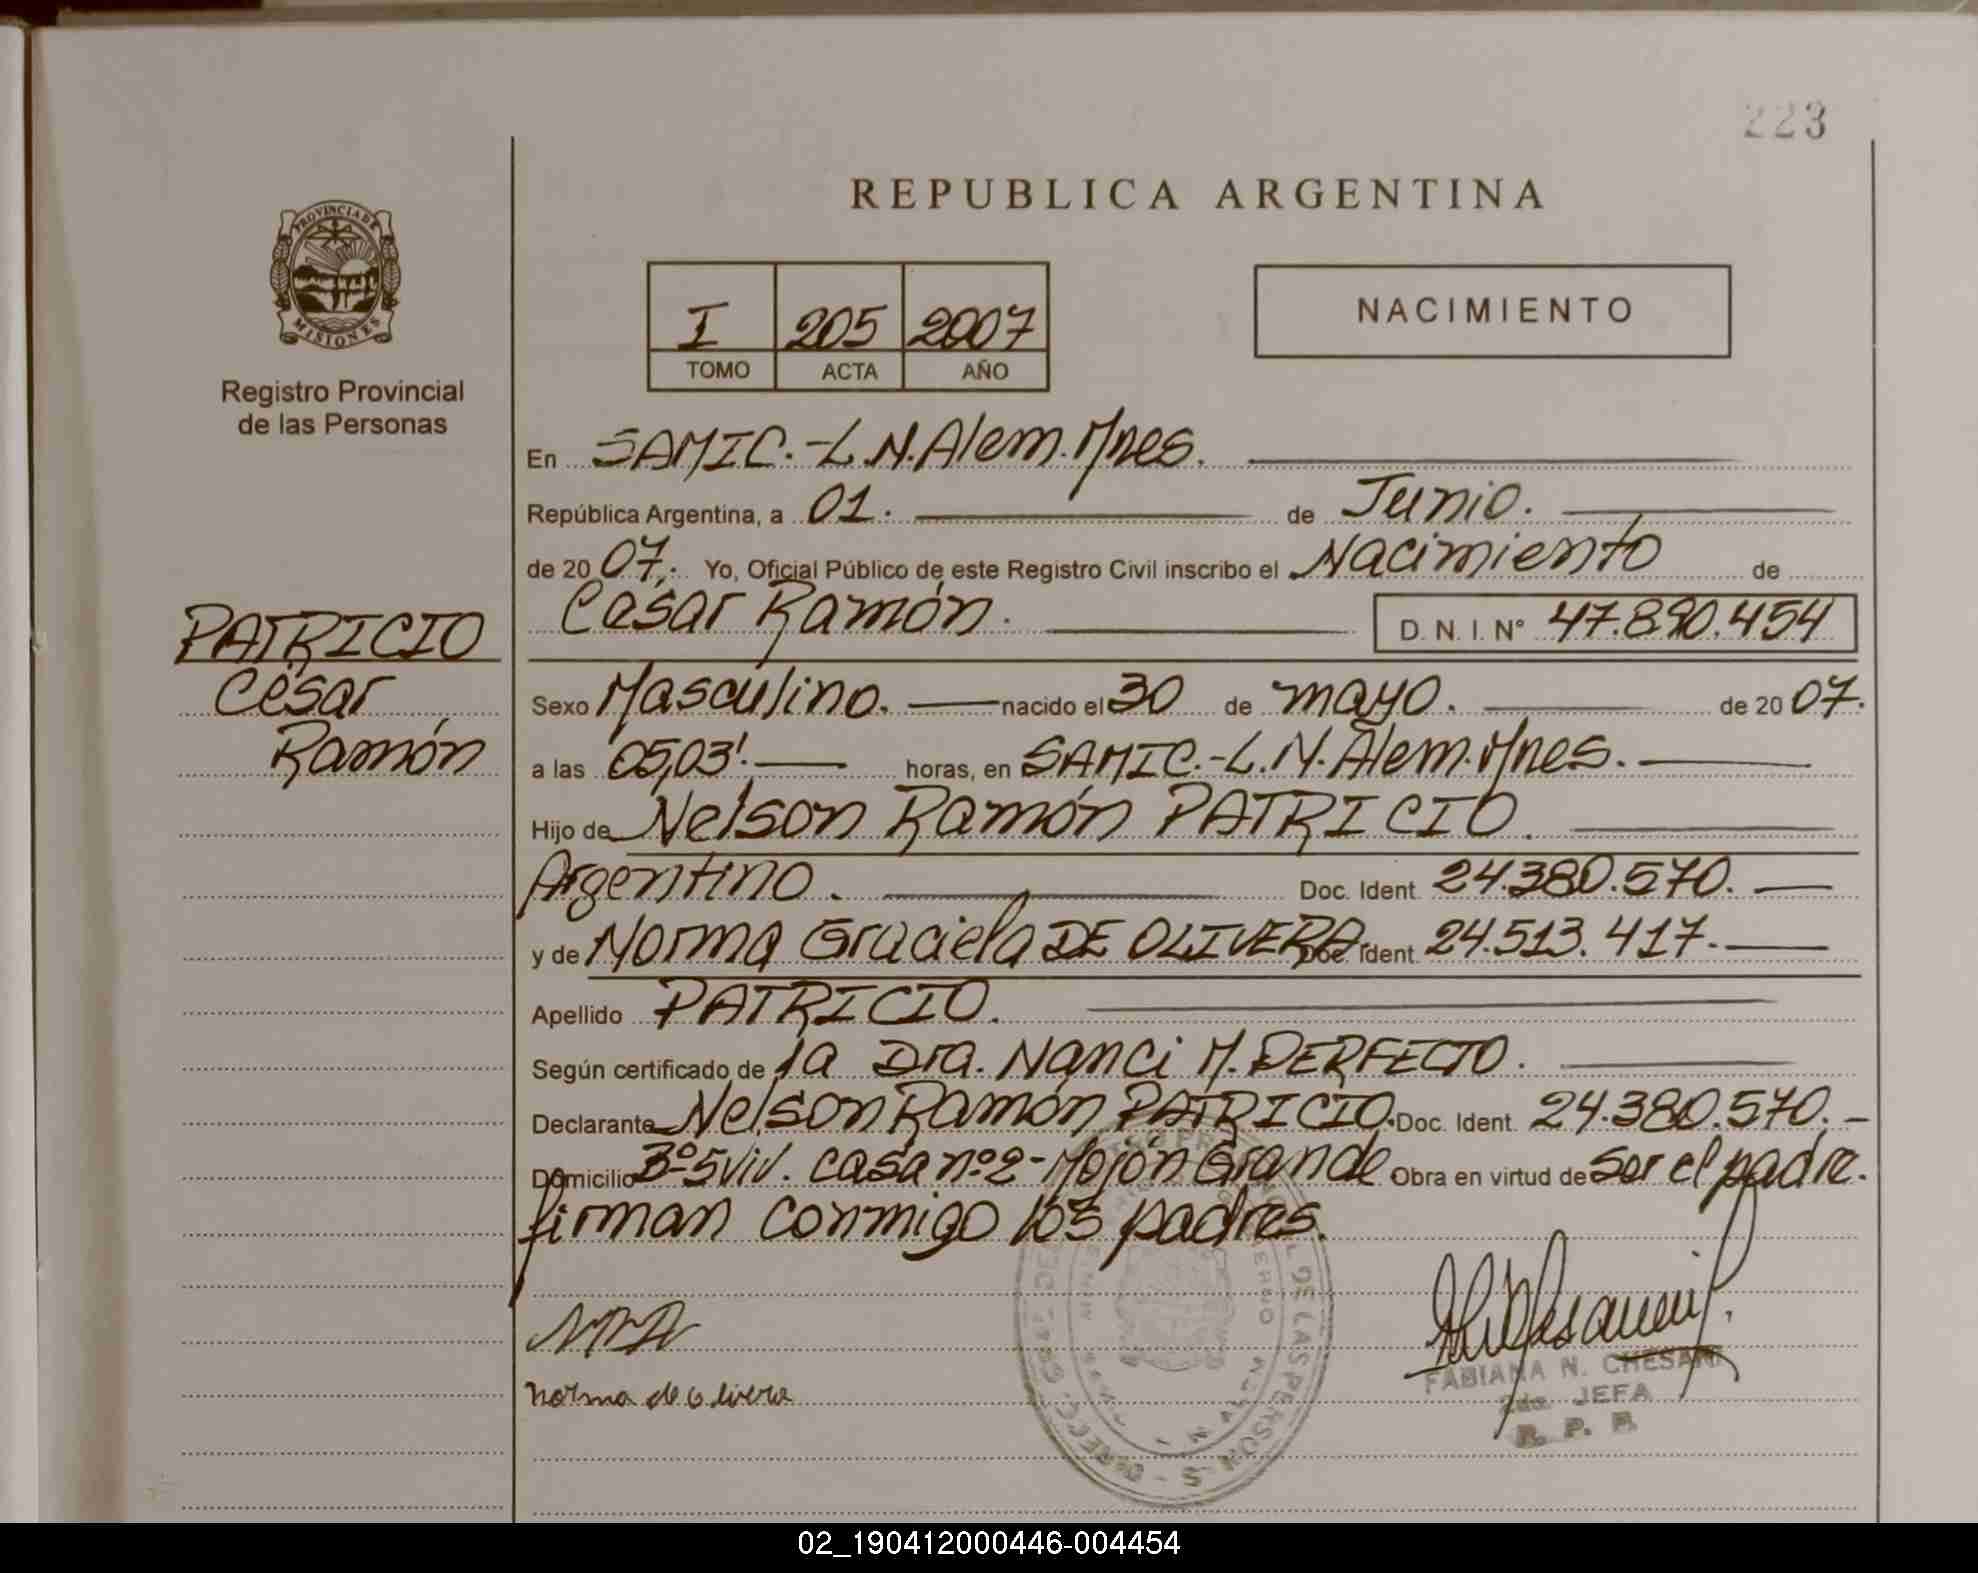 223
REPUBLICA ARGENTINA
PROVINCIA DE
MISIONES
Registro Provincial
de las Personas
I 205 2007
TOMO ACTA AÑO
NACIMIENTO
En SAMIC.-L.N.Alem.Mnes.
República Argentina, a 01. de Junio.
de 2007. Yo, Oficial Público de este Registro Civil inscribo el Nacimiento de
César Ramón. D. N. I. N° 47.890.454
PATRICIO
César
Ramón
Sexo Masculino. nacido el 30 de mayo. de 2007.
a las 05,03'. horas, en SAMIC.-L.N.Alem.Mnes.
Hijo de Nelson Ramón PATRICIO.
Argentino. Doc. Ident. 24.380.570.
y de Norma Graciela DE OLIVERA Doc. Ident. 24.513.417.
Apellido PATRICIO.
Según certificado de la Dra. Nanci M. PERFECTO.
Declarante Nelson Ramón PATRICIO. Doc. Ident. 24.380.570.-
Domicilio B° 5 Viv. casa n°2- Mojón Grande Obra en virtud de Ser el padre.
firman conmigo los padres.
norma de olivera
FABIANA N. CHESANI
2da. JEFA
R. P. P.
02_190412000446-004454